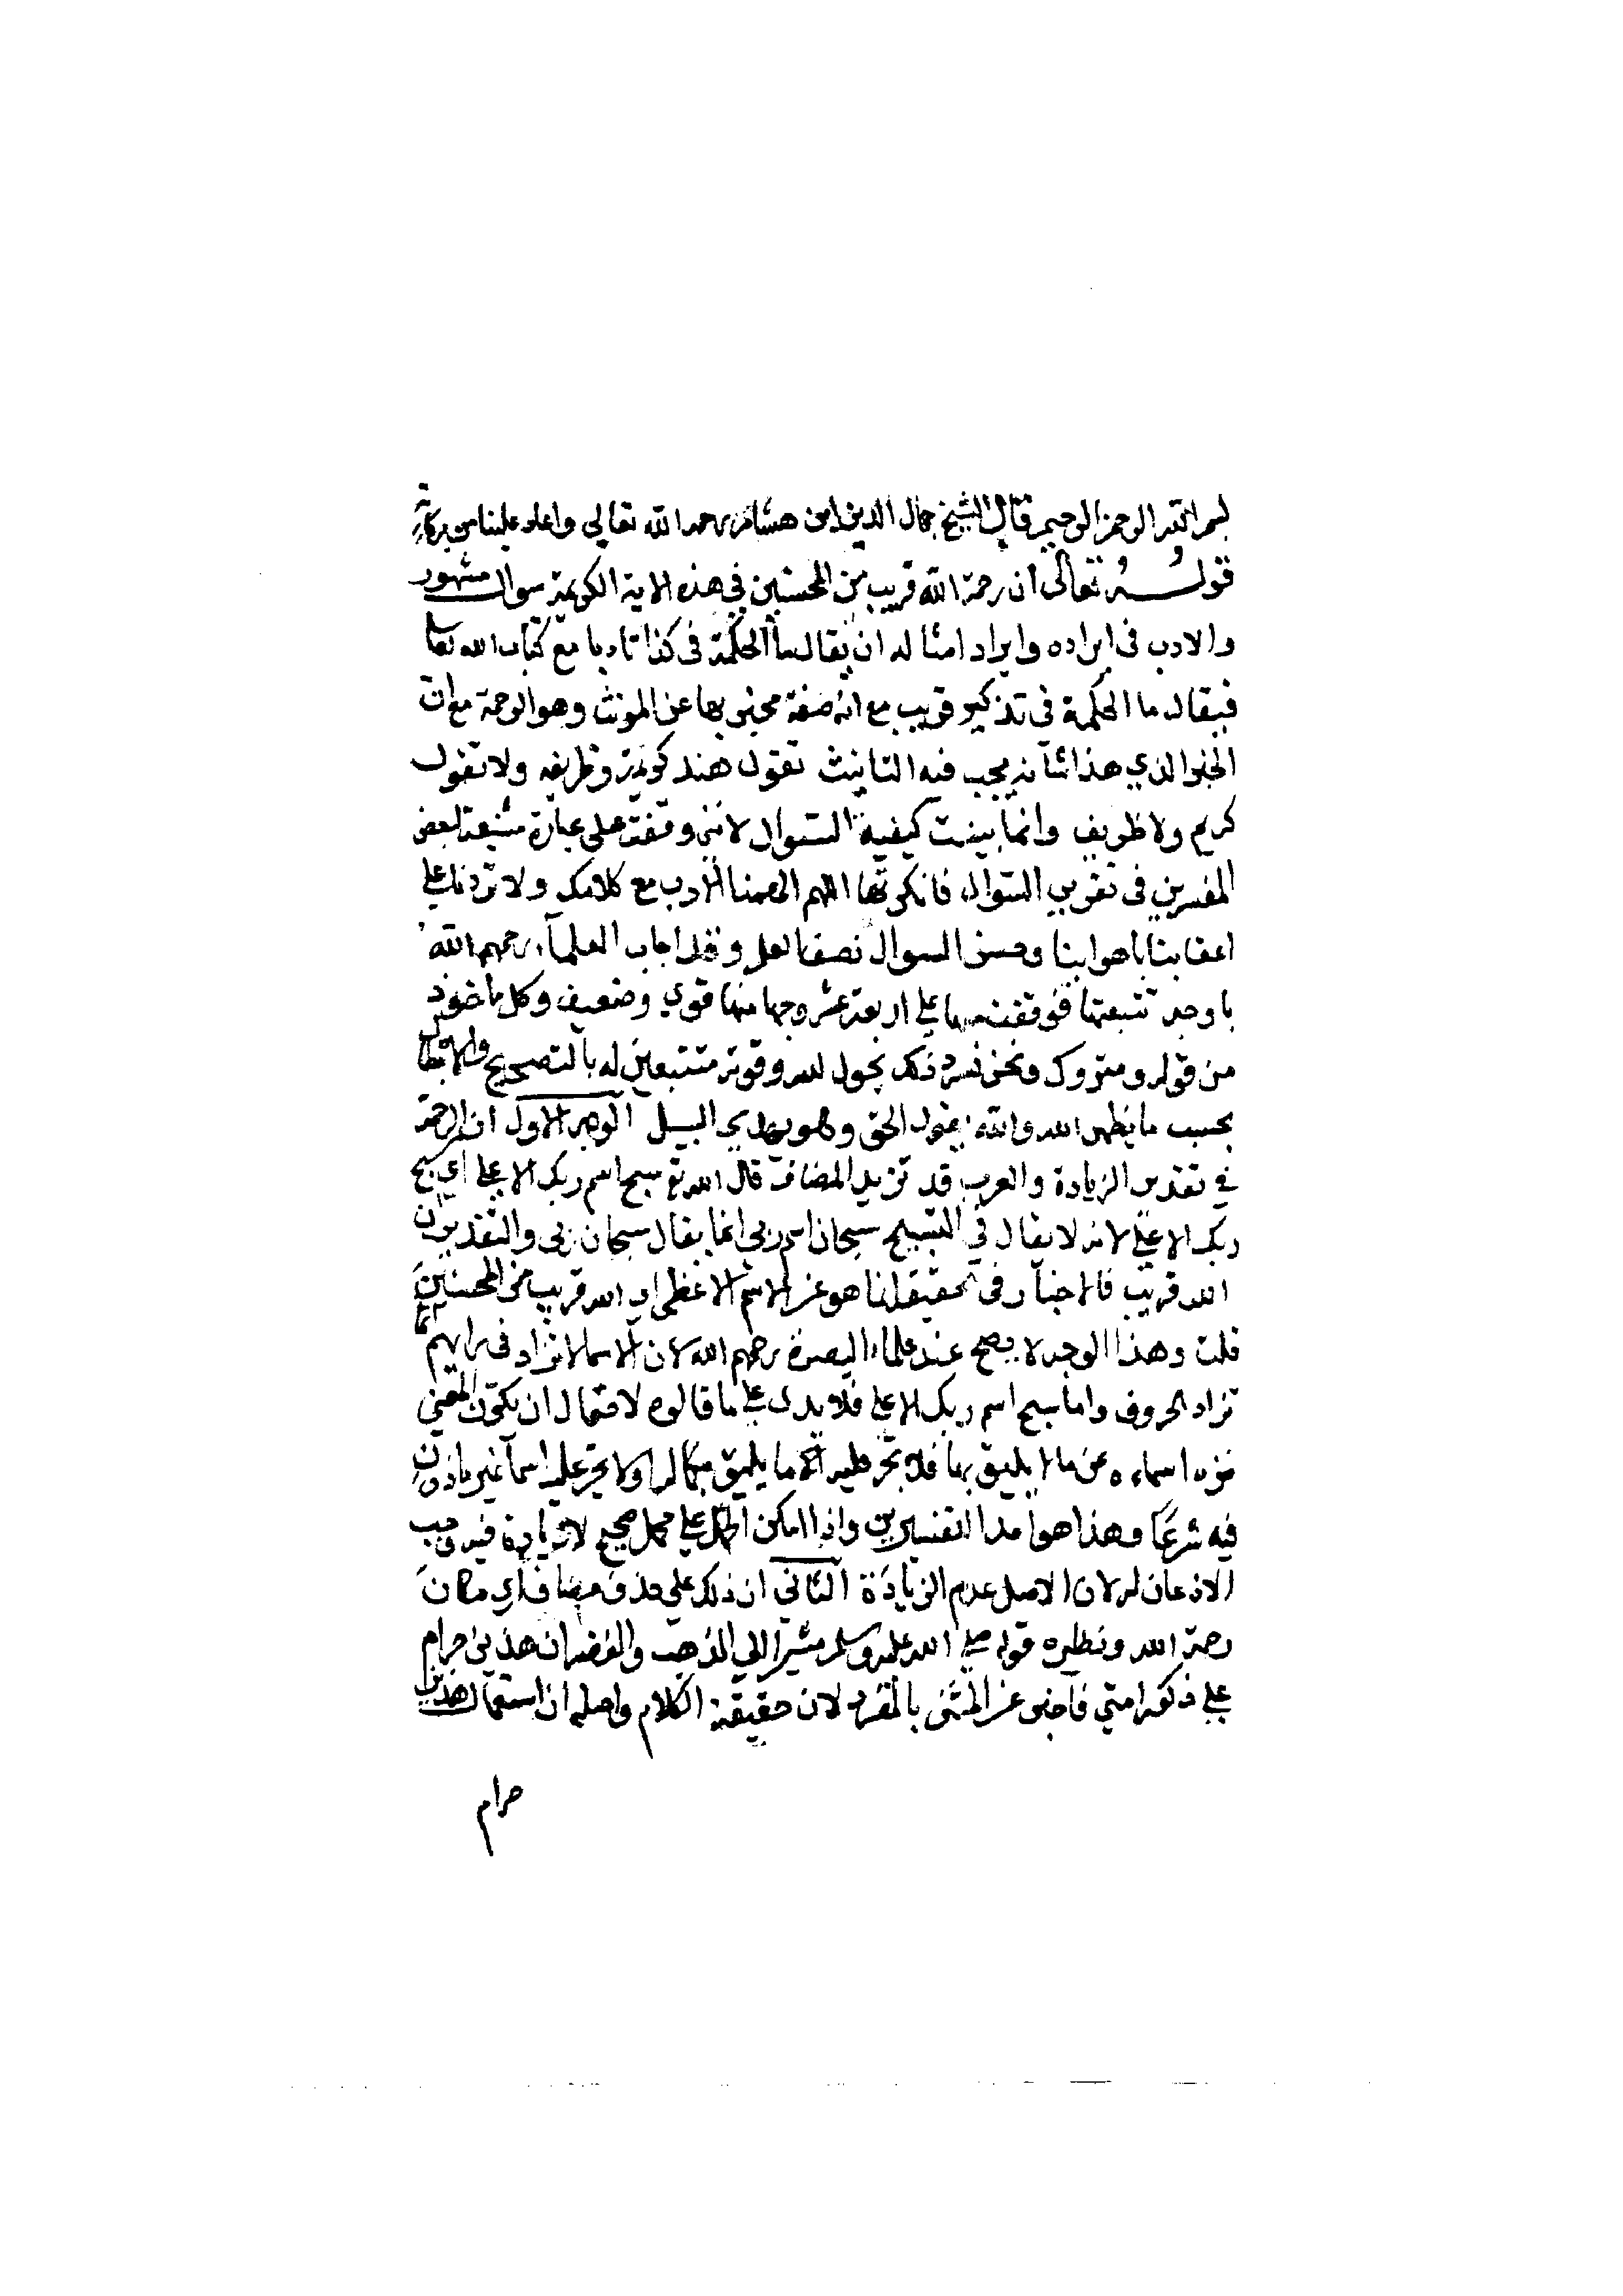 بسم الله الرحمن الرحيم قال الشيخ جمال الدين ابن هشام رحمه الله تعالى واعاد علينا من بركاته
قوله تعالى ان رحمة الله قريب من المحسنين في هذه الاية الكريمة سوال مشهور
والادب في ايراده وايراد امثاله ان يقال ما الحكمة في كذا تادبا مع كتاب الله تعالى
فيقال ما الحكمة في تذكير قريب مع انه صفة مخبر بها عن المونث وهو الرحمة مع ان
الخبر الذي هذا شانه يجب فيه التانيث تقول هند كريمة وظريفه ولا تقول
كريم ولا ظريف وانما بينت كيفية السوال لانني وقفت على عبارة شنيعة لبعض
المفسرين في تقرير السوال فانكرتها اللهم الهمنا الادب مع كلامك ولا تردنا على
اعقابنا باهوائنا وحسن السوال نصف العلم وقد اجاب العلماء رحمهم الله
باوجه تتبعتها فوقفت منها على اربعة عشر وجها منها قوي وضعيف وكل ماخوذ
من قوله ومتروك ونحن نسرد ذلك بحول الله وقوته متتبعين له بالتصحيح والابطال
بحسب ما يظهره الله والله يقول الحق وهو يهدي السبيل الوجه الاول ان الرحمة
في تقدير الزيادة والعرب قد تزيد المضاف قال الله تع سبح اسم ربك الاعلى اي سبح
ربك الاعلى لانه لا يقال في التسبيح سبحان اسم ربي انما يقال سبحان ربي والتقدير ان
الله قريب فالاخبار في الحقيقة انما هو عن الاسم الاعظم اي الله قريب من المحسنين
قلت وهذا الوجه لا يصح عند علماء البصرة رحمهم الله لان الاسما لا تزاد في رايهم انما
تزاد الحروف واما سبح اسم ربك الاعلى فلا يدل على ما قالوه لاحتمال ان يكون المعنى
نزه اسماءه عن ما لا يليق بها فلا تجر عليه الا ما يليق بكماله ولا تجر عليه اسما غير ماذون
فيه شرعا وهذا هو احد التفسيرين واذا امكن الحمل على محمل صحيح لا زيادة فيه وجب
الاذعان له لان الاصل عدم الزيادة الثاني ان ذلك على حذف مضاف اي مكان
رحمة الله ونظيره قوله صلى الله عليه وسلم مشيرا الى الذهب والفضه ان هذين حرام
على ذكور امتي فاخبر عن المثنى بالمفرد لان حقيقة الكلام واصله ان استعمال هذين
حرام